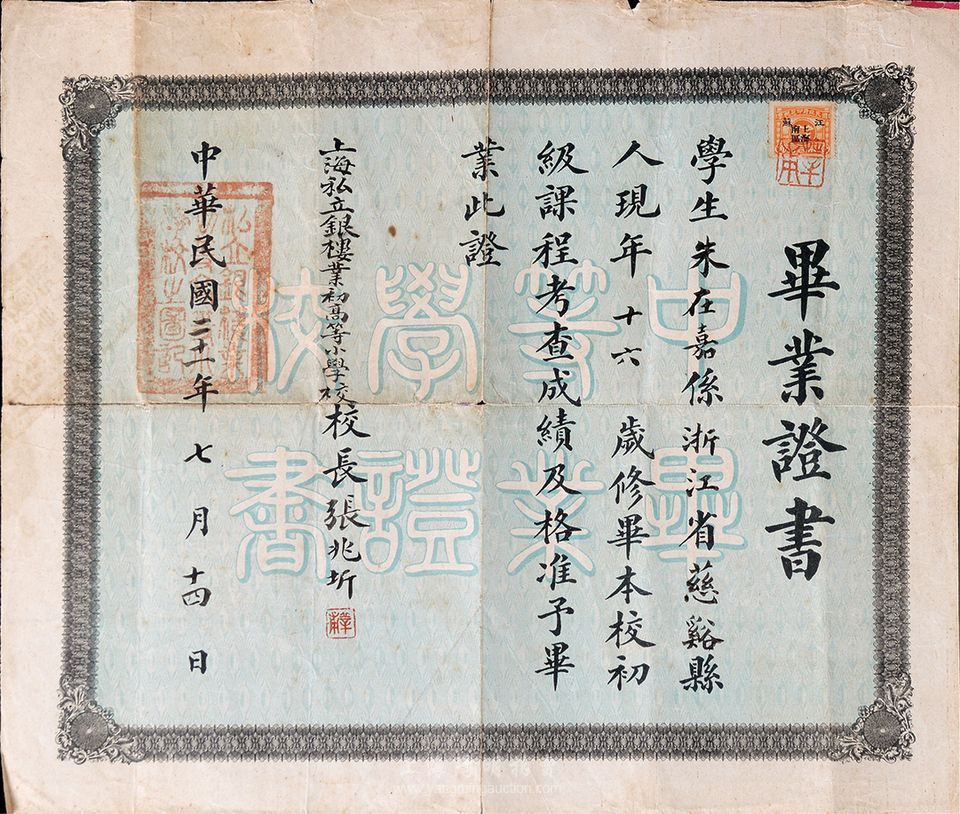 畢業證書
學生朱在嘉係浙江省慈谿縣
人現年十六歲修畢本校初
級課程考查成績及格准予畢
業此證
上海私立銀樓業初高等小學校校長張兆圻
中華民國二十一年七月十四日
中等學校
畢業證書
江蘇
上海
南區
www.yangmingauction.com